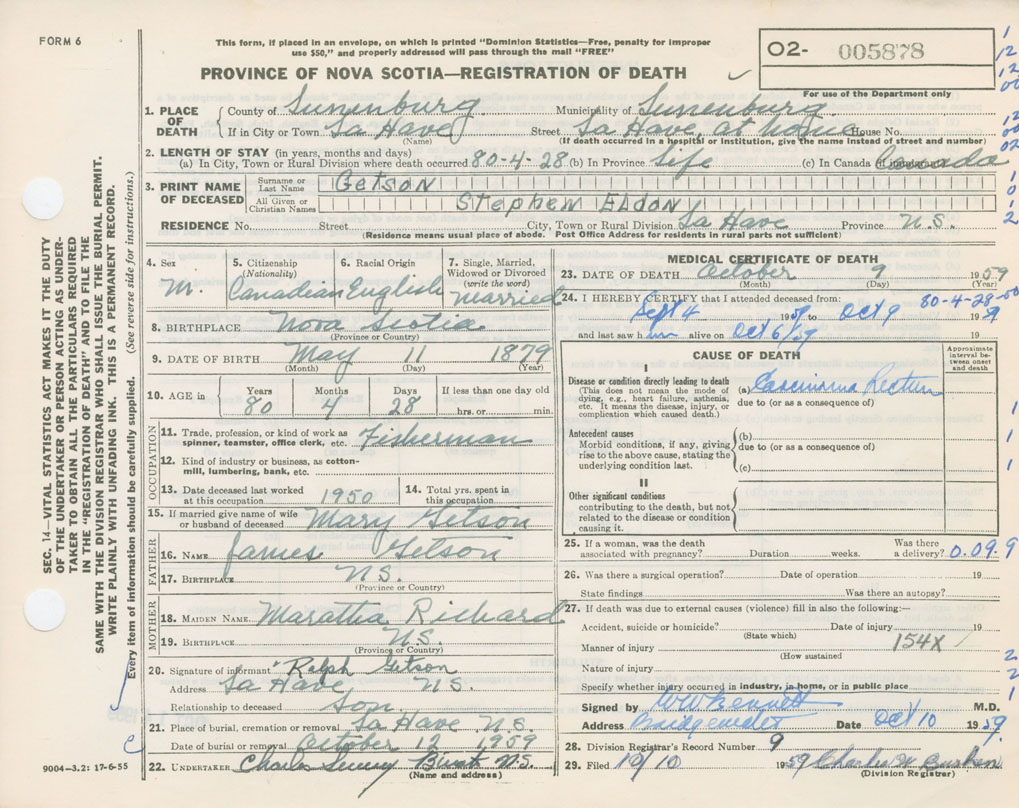 FORM 6
This form, if placed in an envelope, on which is printed "Dominion Statistics—Free, penalty for improper
use $50," and properly addressed will pass through the mail "FREE"
PROVINCE OF NOVA SCOTIA—REGISTRATION OF DEATH
O2- 005878
For use of the Department only
1. PLACE OF DEATH
County of Lunenburg Municipality of Lunenburg
If in City or Town La Have Street La Have, at home House No.
(Name) (If death occurred in a hospital or institution, give the name instead of street and number)
2. LENGTH OF STAY (in years, months and days)
(a) In City, Town or Rural Division where death occurred 80-4-28 (b) In Province Life (c) In Canada Canada
3. PRINT NAME OF DECEASED
Surname or Last Name GETSON
All Given or Christian Names STEPHEN ELDON
RESIDENCE No. Street City, Town or Rural Division La Have Province N.S.
(Residence means usual place of abode. Post Office Address for residents in rural parts not sufficient)
4. Sex M.
5. Citizenship (Nationality) Canadian
6. Racial Origin English
7. Single, Married, Widowed or Divorced (write the word) married
8. BIRTHPLACE Nova Scotia
(Province or Country)
9. DATE OF BIRTH May 11 1879
(Month) (Day) (Year)
10. AGE in Years 80 Months 4 Days 28 If less than one day old hrs. or min.
OCCUPATION
11. Trade, profession, or kind of work as spinner, teamster, office clerk, etc. Fisherman
12. Kind of industry or business, as cotton-mill, lumbering, bank, etc.
13. Date deceased last worked at this occupation 1950
14. Total yrs. spent in this occupation
15. If married give name of wife or husband of deceased Mary Getson
FATHER
16. NAME James Getson
17. BIRTHPLACE N.S.
(Province or Country)
MOTHER
18. MAIDEN NAME Maratha Richard
19. BIRTHPLACE N.S.
(Province or Country)
20. Signature of informant Ralph Getson
Address La Have, N.S.
Relationship to deceased Son.
21. Place of burial, cremation or removal La Have N.S.
Date of burial or removal October 12 1959
22. UNDERTAKER Charles N.S.
(Name and address)
9004—3.2: 17-6-55
MEDICAL CERTIFICATE OF DEATH
23. DATE OF DEATH October 9 1959
(Month) (Day) (Year)
80-4-28-00
24. I HEREBY CERTIFY that I attended deceased from:
Sept 4 1959 to Oct 9 1959
and last saw him alive on Oct 6/59 19
CAUSE OF DEATH
Approximate interval between onset and death
I
Disease or condition directly leading to death
(This does not mean the mode of dying, e.g., heart failure, asthenia, etc. It means the disease, injury, or complication which caused death.)
(a) Carcinoma Rectum
due to (or as a consequence of)
Antecedent causes
Morbid conditions, if any, giving rise to the above cause, stating the underlying condition last.
(b)
due to (or as a consequence of)
(c)
II
Other significant conditions
contributing to the death, but not related to the disease or condition causing it.
25. If a woman, was the death associated with pregnancy? Duration weeks. Was there a delivery? 0.09.9
26. Was there a surgical operation? Date of operation 19
State findings Was there an autopsy?
27. If death was due to external causes (violence) fill in also the following:—
Accident, suicide or homicide? Date of injury 19
(State which)
Manner of injury 154X
(How sustained)
Nature of injury
Specify whether injury occurred in industry, in home, or in public place
Signed by W W Bennett M.D.
Address Bridgewater Date Oct 10 1959.
28. Division Registrar's Record Number 9
29. Filed 10/10 1959 Charles W
(Division Registrar)
SEC. 14—VITAL STATISTICS ACT MAKES IT THE DUTY
OF THE UNDERTAKER OR PERSON ACTING AS UNDER-
TAKER TO OBTAIN ALL THE PARTICULARS REQUIRED
IN THE "REGISTRATION OF DEATH" AND TO FILE THE
SAME WITH THE DIVISION REGISTRAR WHO SHALL ISSUE THE BURIAL PERMIT.
WRITE PLAINLY WITH UNFADING INK. THIS IS A PERMANENT RECORD.
Every item of information should be carefully supplied. (See reverse side for instructions.)
1
12
12
00
12
00
02
1
0
1
2
1
1
1
2
2
1